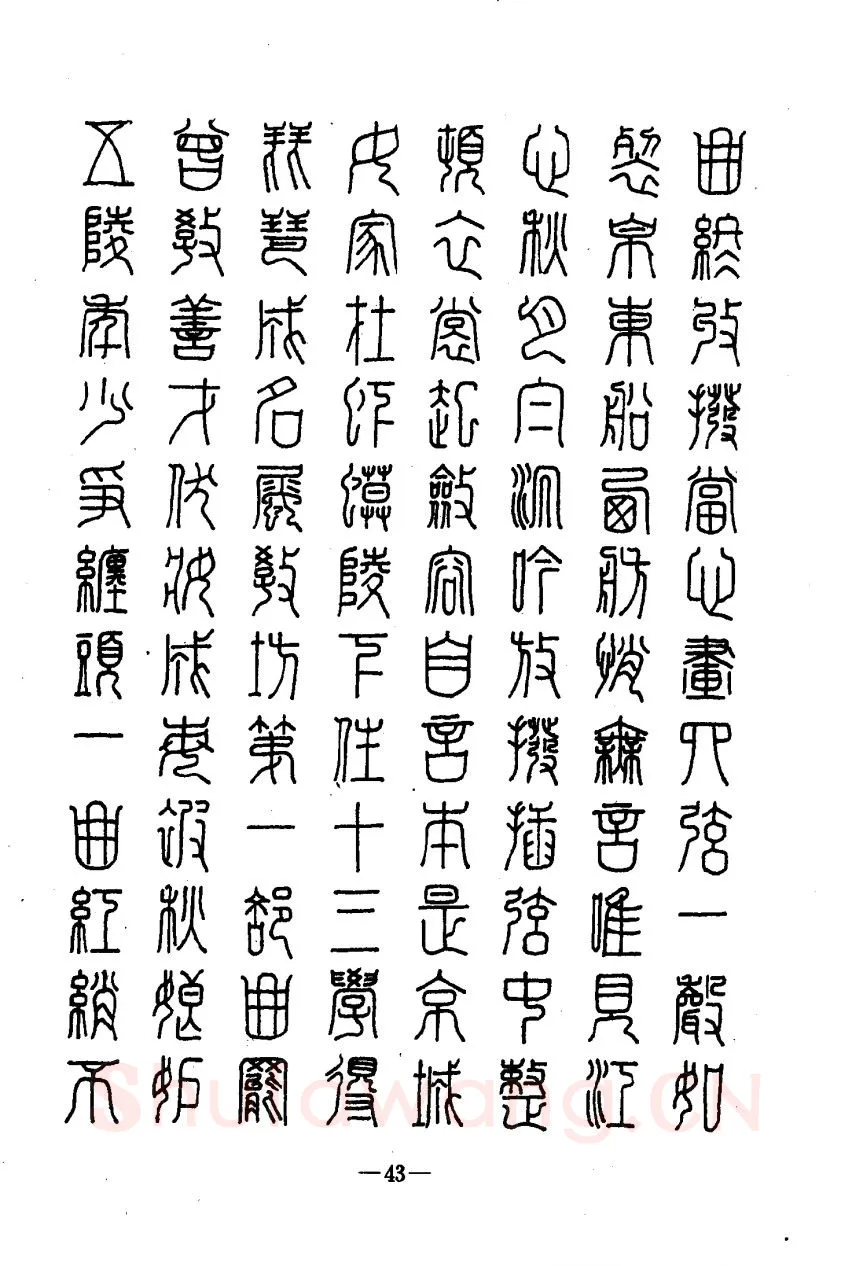 曲終收撥當心畫四弦一聲如
裂帛東船西舫悄無言唯見江
心秋月白沉吟放撥插弦中整
頓衣裳起斂容自言本是京城
女家在蝦蟆陵下住十三學得
琵琶成名屬教坊第一部曲罷
曾教善才伏妝成每被秋娘妒
五陵年少爭纏頭一曲紅綃不
Shufawang.CN
—43—